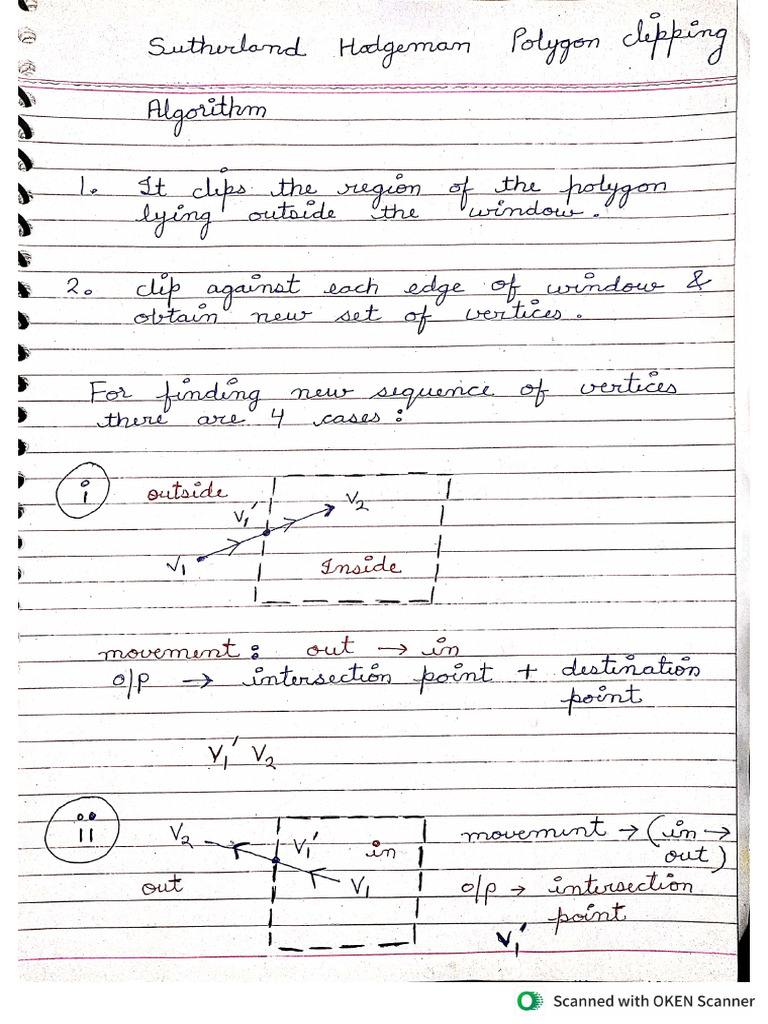 Sutherland Hodgeman Polygon clipping
Algorithm
1. It clips the region of the polygon
lying outside the window.
2. clip against each edge of window &
obtain new set of vertices.
For finding new sequence of vertices
there are 4 cases:
i outside V1' V2
V1 Inside
movement: out → in
o/p → intersection point + destination
point
V1' V2
ii V2 V1' in movement → (in →
out)
out V1 o/p → intersection
point
V1'
Scanned with OKEN Scanner